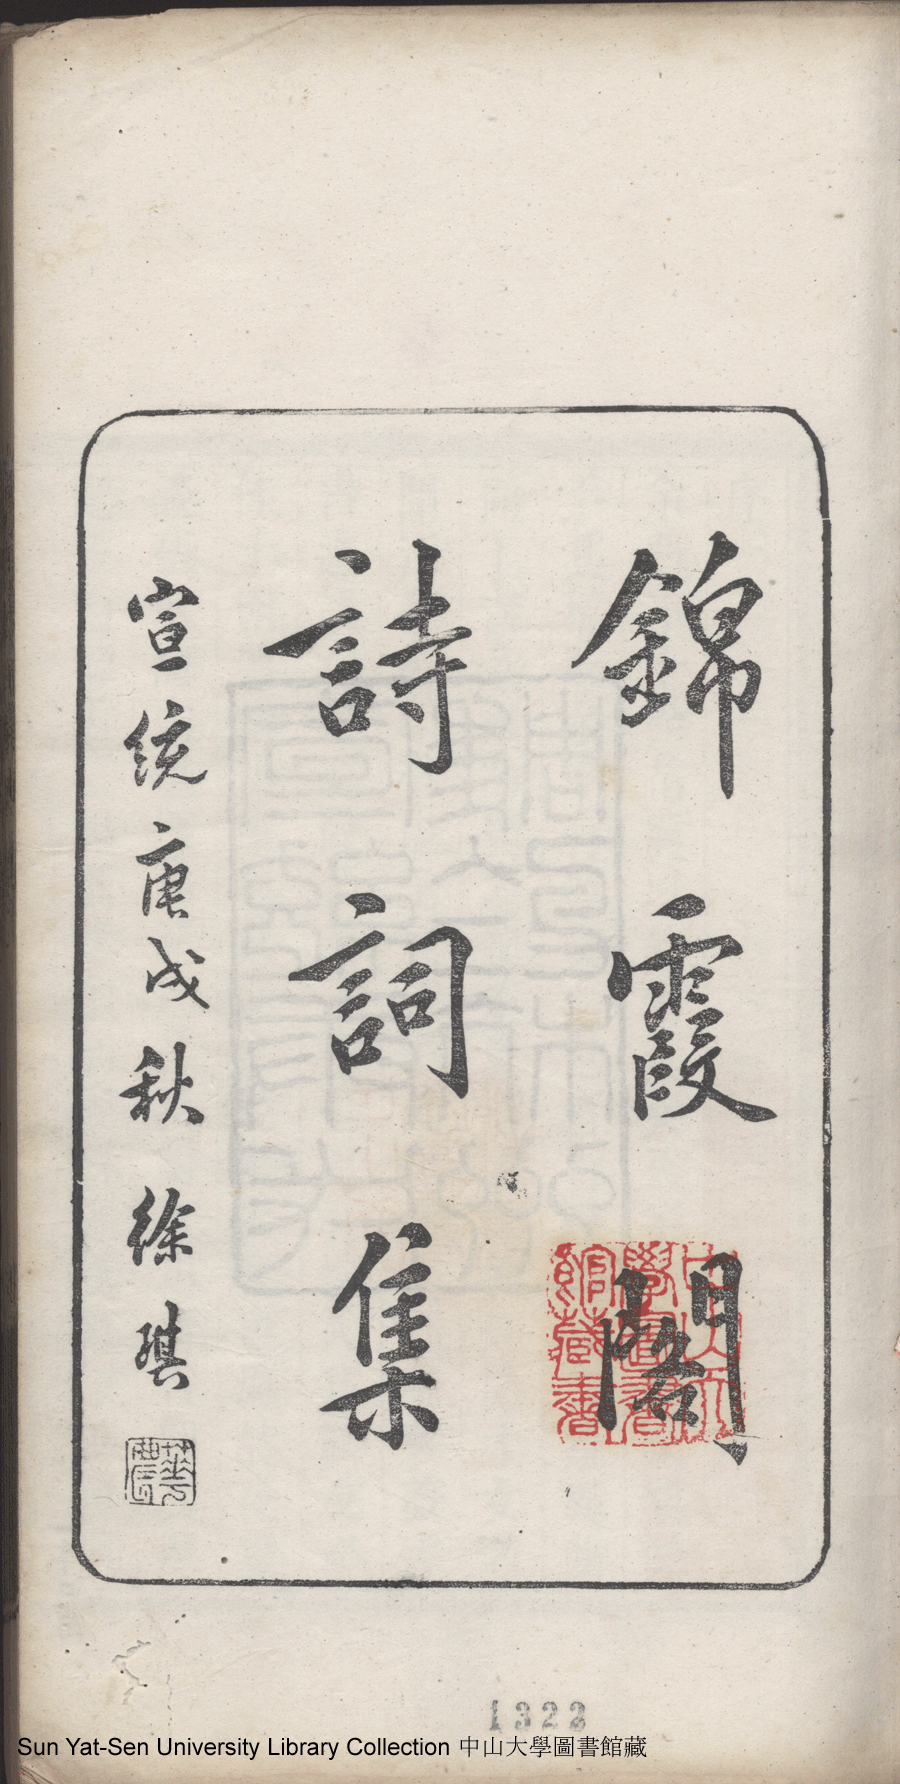 錦霞閣
詩詞集
宣統庚戌秋徐琪
華農
中山大
學圖書
館藏書
1323
Sun Yat-Sen University Library Collection 中山大學圖書館藏